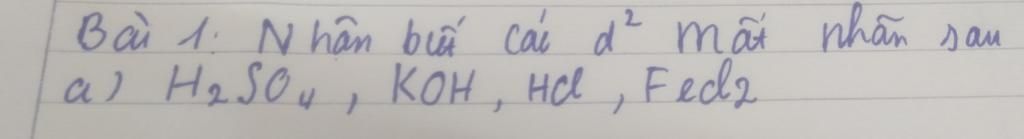 Bài 1: Nhận biết các d² mất nhãn sau
a) H₂SO₄, KOH, HCl, FeCl₂